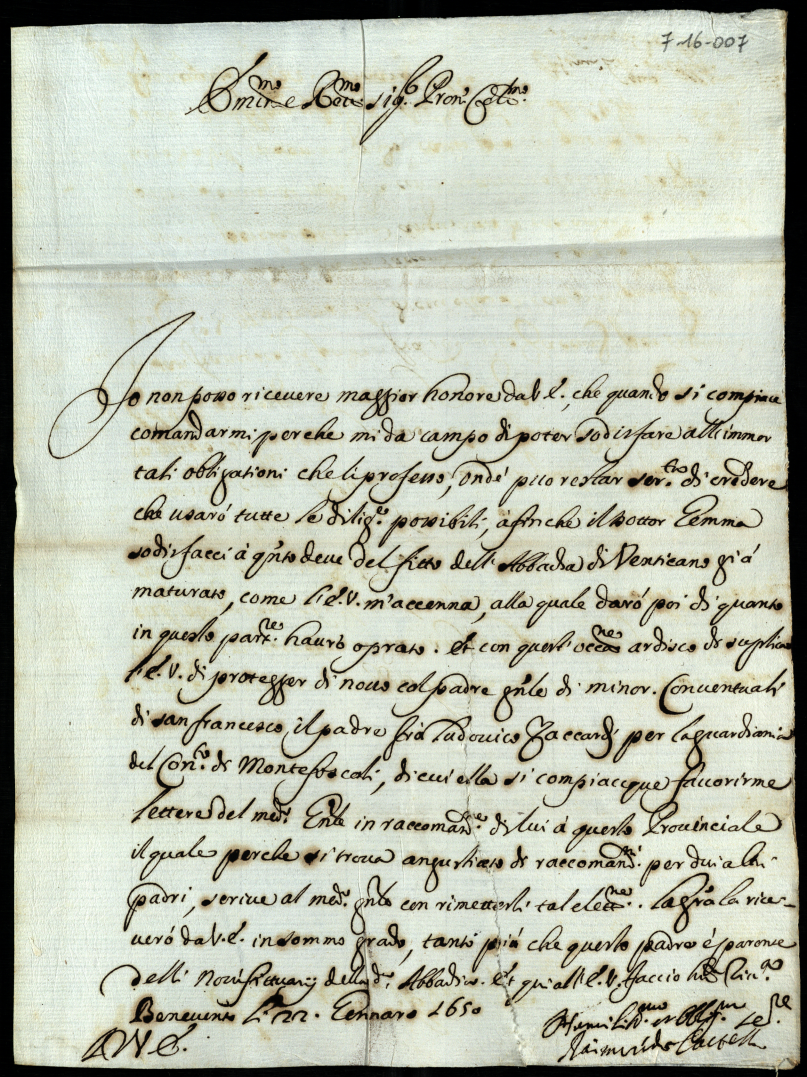 7-16-007
Emin:mo e R:mo sig:r Pron: Col:mo
Io non posso ricevere maggior honore da V.E., che quando si compiace
comandarmi perche mi da campo di poter sodisfare all'immor
tali obligationi che li professo, onde può restar ser:ta di credere
che usaró tutte le dilig:e possibili, á finche il Dottor Gemma
sodisfacci á q:nto deve del fitto dell'Abbadia di Venticano giá
maturato, come l'E.V. m'accenna, alla quale daró poi di quanto
in questo part:re hauró oprato. Et con questi occ:ne ardisco di suplicar
l'E.V. di protegger di novo col padre g:nle di minor. Conventuali
di san francesco, il padre frá Ludovico Zaccardi per la guardiania
del Con:to di Montefoscoli, di cui ella si compiacque favorirme
lettere del med:o G:nle in raccoman:e di lui á questo Provinciale
il quale perche si trova angustiato di raccoman:ni per dui altri
padri, scrive al med:o g:nle con rimetterli tal elett:ne. La gra la rice-
veró da V.E. in sommo grado, tanto piú che questo padre é parente
delli novi fittuarij della d:a Abbadia. Et qui all'E.V. faccio
Benevento li 22. Gennaro 1650
D V E.
Humiliss:mo et obblig:mo se:re
Raimundo